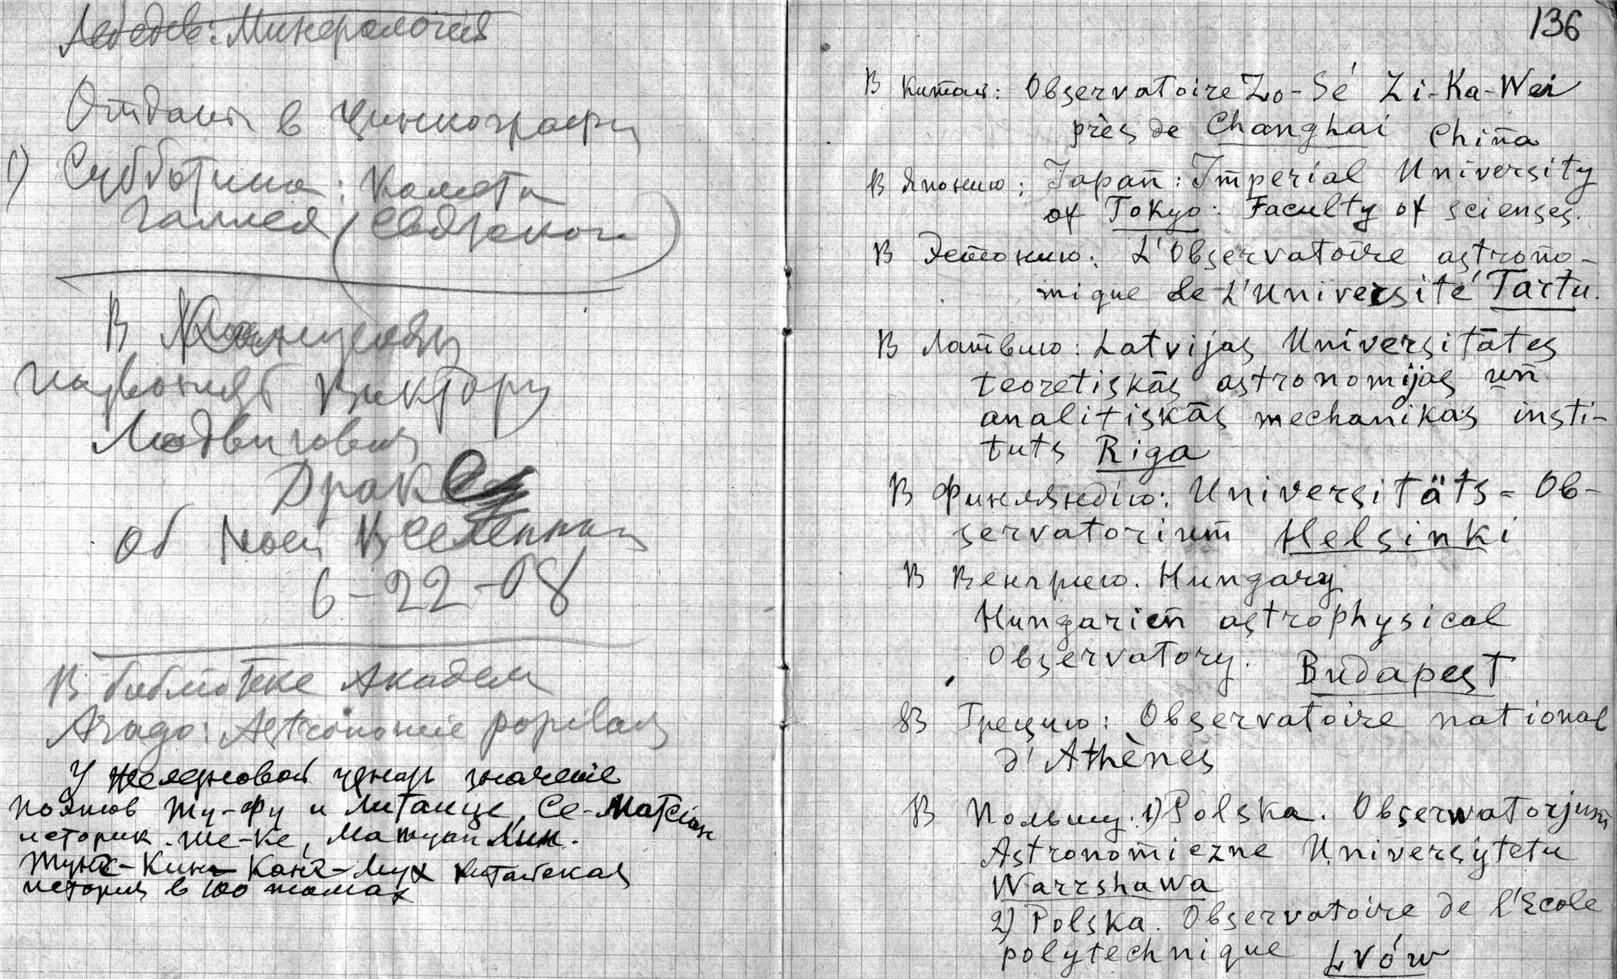 Лебедев: Минералогия
Отдать в цинкографи
1) Субботина: Комета
Галлея (Святского)
В Канцеляр
позвонить Виктору
Людвигович
Драке
об моей Вселенная
6-22-08
В библиотеке Академ
Arago: Astronomie popilas
У значение
поэтов Ту-Фу и Литайце, Се-Матсian
историк. Ше-Ке,
Тунг-Кинг Канг-Му китайская
история в 100 томах
136
В Китай: Observatoire Zo-Sé Zi-Ka-Wei
près de Changhai China
В Японию: Japan: Imperial University
of Tokyo: Faculty of scienses.
В Эстонию: L'Observatoire astrono-
mique de L'Université Tartu.
В Латвию: Latvijas Universitātes
teoretiskās astronomijas un
analitiskās mechanikas insti-
tuts Riga
В Финляндію: Universitäts-Ob-
servatorium Helsinki
В Венгрию. Hungary
Hungarien astrophysical
Observatory. Budapest
В Грецию: Observatoire national
d'Athènes
В Польшу. 1) Polska. Obserwatorjum
Astronomiczne Universytetu
Warrshawa
2) Polska. Observatoire de l'Ecole
polytechnique Lvów